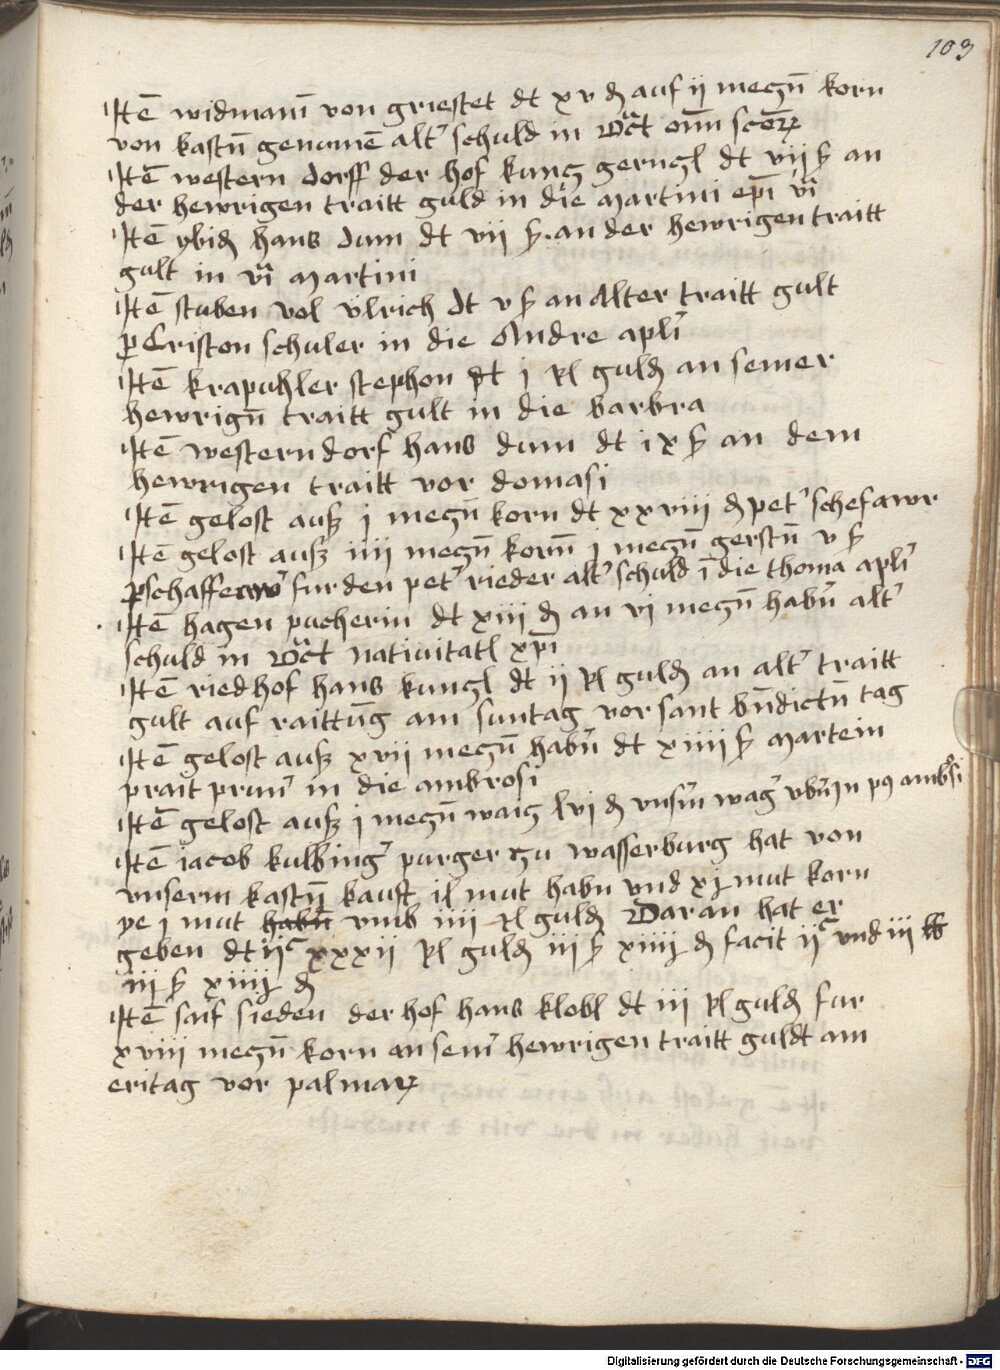 103
Itē widman̄ von griestet dt xv ₰ auf ij megn̄ korn
von kastn̄ genumē alt' schuld in oct om̄ scōꝝ
Itē western dorff der hof kunz gerngl dt vij ß an
der hewrigen traitt guld in die martini ep̄i
Itē ybiß hans dum dt vii ß an der hewrigen traitt
gult in martini
Itē stuben vol ulrich dt v ß an alter traitt gult
p Criston schuler in die Andre apl'i
Itē krapuhler stephon dt j Rl guldn̄ an seiner
hewrign̄ traitt gult in die barbra
Itē westerndorf hans dum dt ix ß an dem
hewrigen traitt vor domasi
Itē gelost auß j megn̄ korn dt xxviii ₰ pet' schefawr
Itē gelost auß iiij megn̄ korn̄ j megn̄ gerstn̄ v ß
p schaffer fur den pet' rieder alt' schuld ī die thoma apl'i
Itē hagen pucherin dt xiii ₰ an vi megn̄ habn̄ alt'
schuld in oct nativitatl xp̄i
Itē riedhof hans kunzl dt ij Rl guldn̄ an alt' traitt
gult auf raittūg am suntag vor sant bn̄dictn̄ tag
Itē gelost auß xvii megn̄ habn̄ dt xiiii ß martein
prait prun' in die ambrosi
Itē gelost auß j megn̄ waiz lvi ₰ vnsn̄ wag' p9 ambrosi
Itē iacob kulbing' purger zu wasserburg hat von
vnserm kastn̄ kauft il mut habn vnd xj mut korn
ye j mut habn̄ vmb iiii Rl guldn̄ Daran hat er
geben dt ijc xxxij Rl guldn̄ iii ß xiiij ₰ facit ijc vnd iii lb
iij ß xiiij ₰
Itē saif sieden der hof hans klobl dt iii Rl guldn̄ fur
xviii megn̄ korn an sein' hewrigen traitt guldt am
eritag vor palmaꝝ
Digitalisierung gefördert durch die Deutsche Forschungsgemeinschaft - DFG